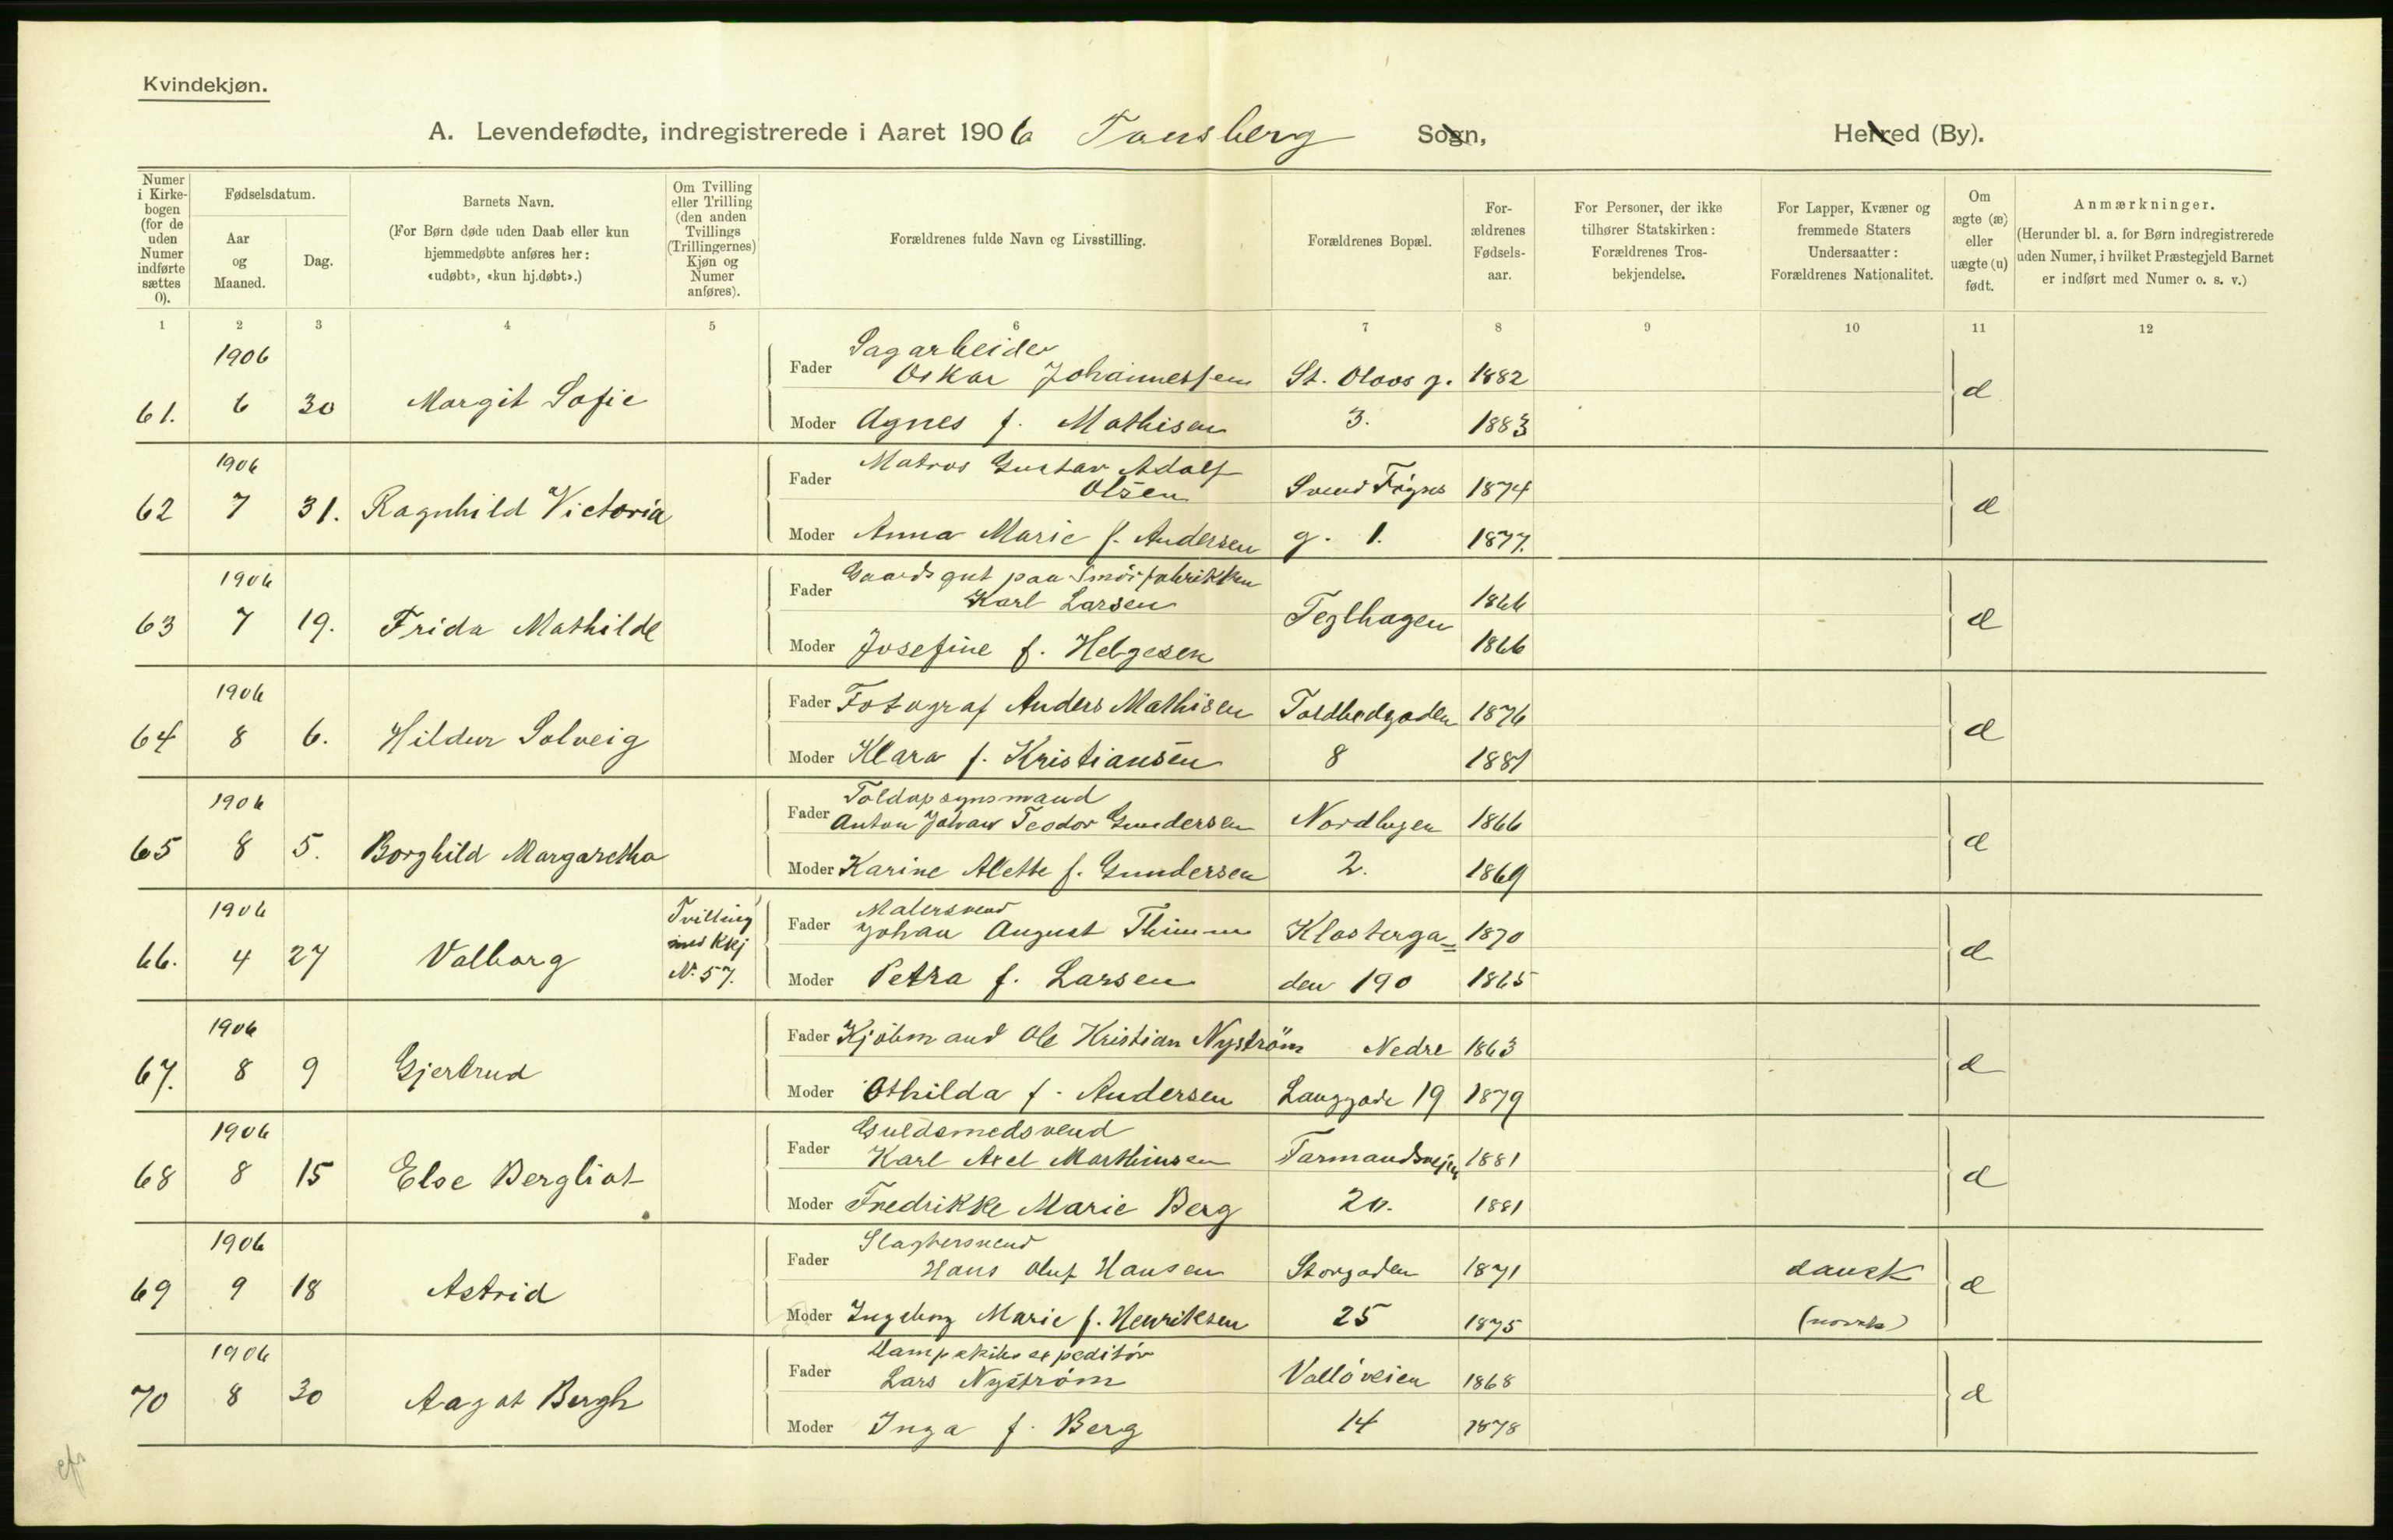 Kvindekjøn.
A. Levendefødte, indregistrerede i Aaret 1906 Tønsberg Sogn, Herred (By).
Numer i Kirkebogen (for de uden Numer indførte sættes 0).
Fødselsdatum.
Aar og Maaned.
Dag.
Barnets Navn.
(For Børn døde uden Daab eller kun hjemmedøbte anføres her: «udøbt», «kun hj.døbt».)
Om Tvilling eller Trilling (den anden Tvillings (Trillingernes) Kjøn og Numer anføres).
Forældrenes fulde Navn og Livsstilling.
Forældrenes Bopæl.
Forældrenes Fødselsaar.
For Personer, der ikke tilhører Statskirken: Forældrenes Trosbekjendelse.
For Lapper, Kvæner og fremmede Staters Undersaatter: Forældrenes Nationalitet.
Om ægte (æ) eller uægte (u) født.
Anmærkninger.
(Herunder bl. a. for Børn indregistrerede uden Numer, i hvilket Præstegjeld Barnet er indført med Numer o. s. v.)
1 2 3 4 5 6 7 8 9 10 11 12
1906 Sagarbeider
Fader Oskar Johannessen St. Olavs g. 1882
61. 6 30 Margit Sofie æ
Moder Agnes f. Mathisen 3. 1883
1906 Matros Gustav Adolf
Fader Olsen Svend Föyns 1874
62 7 31. Ragnhild Victoria æ
Moder Anna Marie f. Andersen g. 1. 1877.
1906 Gaardsgut paa Smörfabrikken
Fader Karl Larsen 1866
63 7 19. Frida Mathilde Teglhagen æ
Moder Josefine f. Helgesen 1866
1906
Fader Fotograf Anders Mathisen Toldbodgaden 1876
64 8 6. Hildur Solveig æ
Moder Klara f. Kristiansen 8 1881
1906 Toldopsynsmand
Fader Anton Johan Teodor Gundersen Nordbyen 1866
65 8 5. Borghild Margaretha æ
Moder Karine Alette f. Gundersen 2. 1869
1906 Tvilling Malersvend
Fader Johan August Thimm Klosterga= 1870
66. 4 27 Valborg med Kkj æ
N. 57. Moder Petra f. Larsen den 190 1865
1906
Fader Kjöbmand Ole Kristian Nyström Nedre 1863
67. 8 9 Gjertrud æ
Moder Othilda f. Andersen Langgade 19 1879
1906 Guldsmedsvend
Fader Karl Axel Marthinsen Farmandsveien 1881
68 8 15 Else Bergliot æ
Moder Fredrikke Marie Berg 20. 1881
1906 Slagtersvend
Fader Hans Oluf Hansen Storgaden 1871 dansk
69 9 18 Astrid æ
Moder Ingeborg Marie f. Henriksen 25 1875 (norsk)
1906 Dampskibsexpeditör
Fader Lars Nyström Vallöveien 1868
70 8 30 Aagot Bergh æ
Moder Inga f. Berg 14 1878